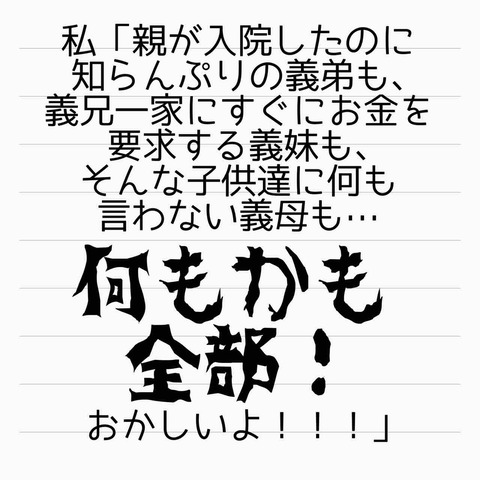 私「親が入院したのに
知らんぷりの義弟も、
義兄一家にすぐにお金を
要求する義妹も、
そんな子供達に何も
言わない義母も…
何もかも
全部！
おかしいよ！！！」